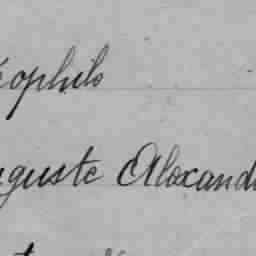 éophile
uguste Alexand